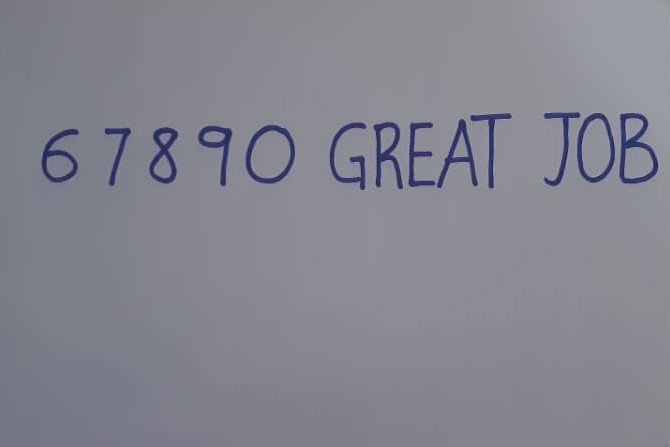 67890 GREAT JOB